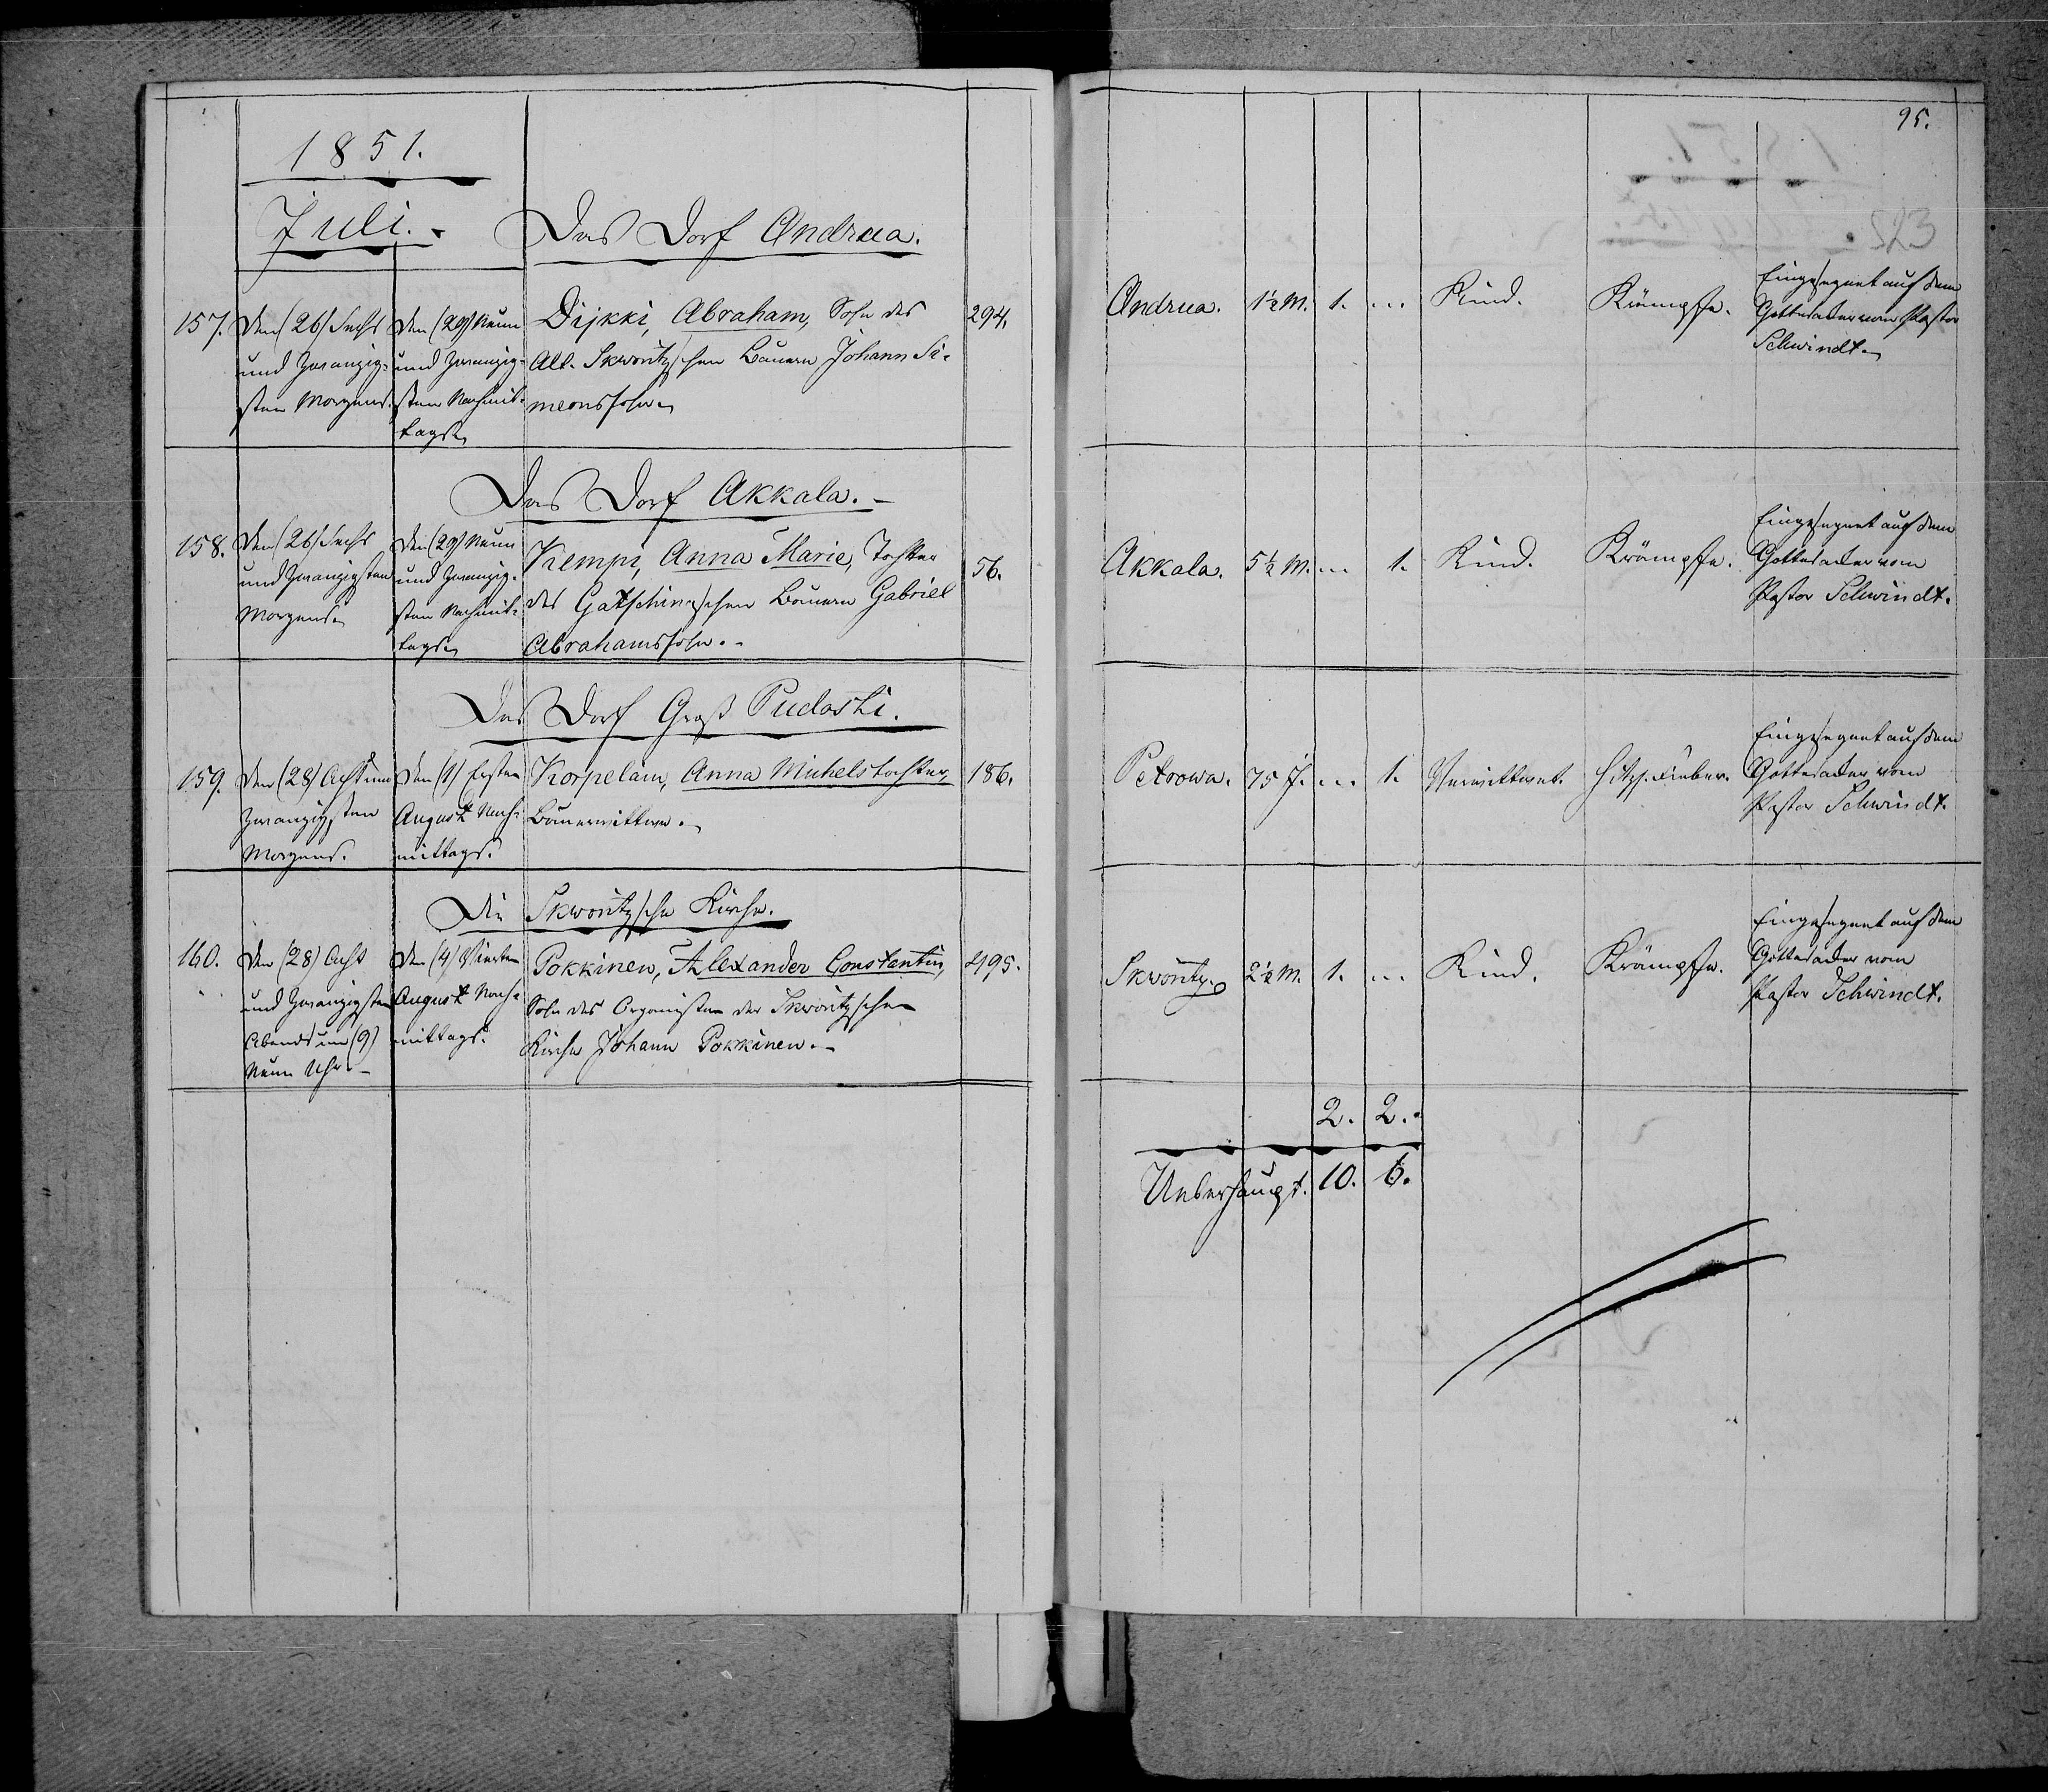 1851.
Juli.
Das Dorf Andrua.
157.
Den (26) Sechs
und Zwanzig-
sten Morgens.
Den (29) Neun
und Zwanzig-
sten Nachmit-
tags.
Dijkki, Abraham, Sohn des
Alt-Skworitzschen Bauern Johann Si-
meonssohn.
294.
Das Dorf Akkala.
158.
Den (26) Sechs
und Zwanzigsten
Morgens.
Den (29) Neun
und Zwanzig-
sten Nachmit-
tags.
Kempi, Anna Marie, Tochter
des Gatschinaschen Bauern Gabriel
Abrahamssohn.
56.
Das Dorf Groß Pudosti.
159.
Den (28) Acht und
Zwanzigsten
Morgens.
Den (1) Ersten
August Nach-
mittags.
Korpelain, Anna Michelstochter,
Bauerwittwe.
186.
Die Skworitzsche Kirche.
160.
Den (28) Acht
und Zwanzigsten
Abends um (9)
Neun Uhr.
Den (4) Vierten
August Nach-
mittags.
Pokkinen, Alexander Constantin,
Sohn des Organisten der Skworitzschen
Kirche Johann Pokkinen.
495.
95.
523
Andrua. 1½ M. 1. ... Kind. Krämpfe.
Eingesegnet auf dem
Gottesacker vom Pastor
Schwindt.
Akkala. 5½ M. ... 1. Kind. Krämpfe.
Eingesegnet auf dem
Gottesacker vom
Pastor Schwindt.
Petrowa. 75 J. ... 1. Verwittwet. Hitz. Fieber.
Eingesegnet auf dem
Gottesacker vom
Pastor Schwindt.
Skworitz. 2½ M. 1. ... Kind. Krämpfe.
Eingesegnet auf dem
Gottesacker vom
Pastor Schwindt.
2. 2.
Ueberhaupt. 10. 6.